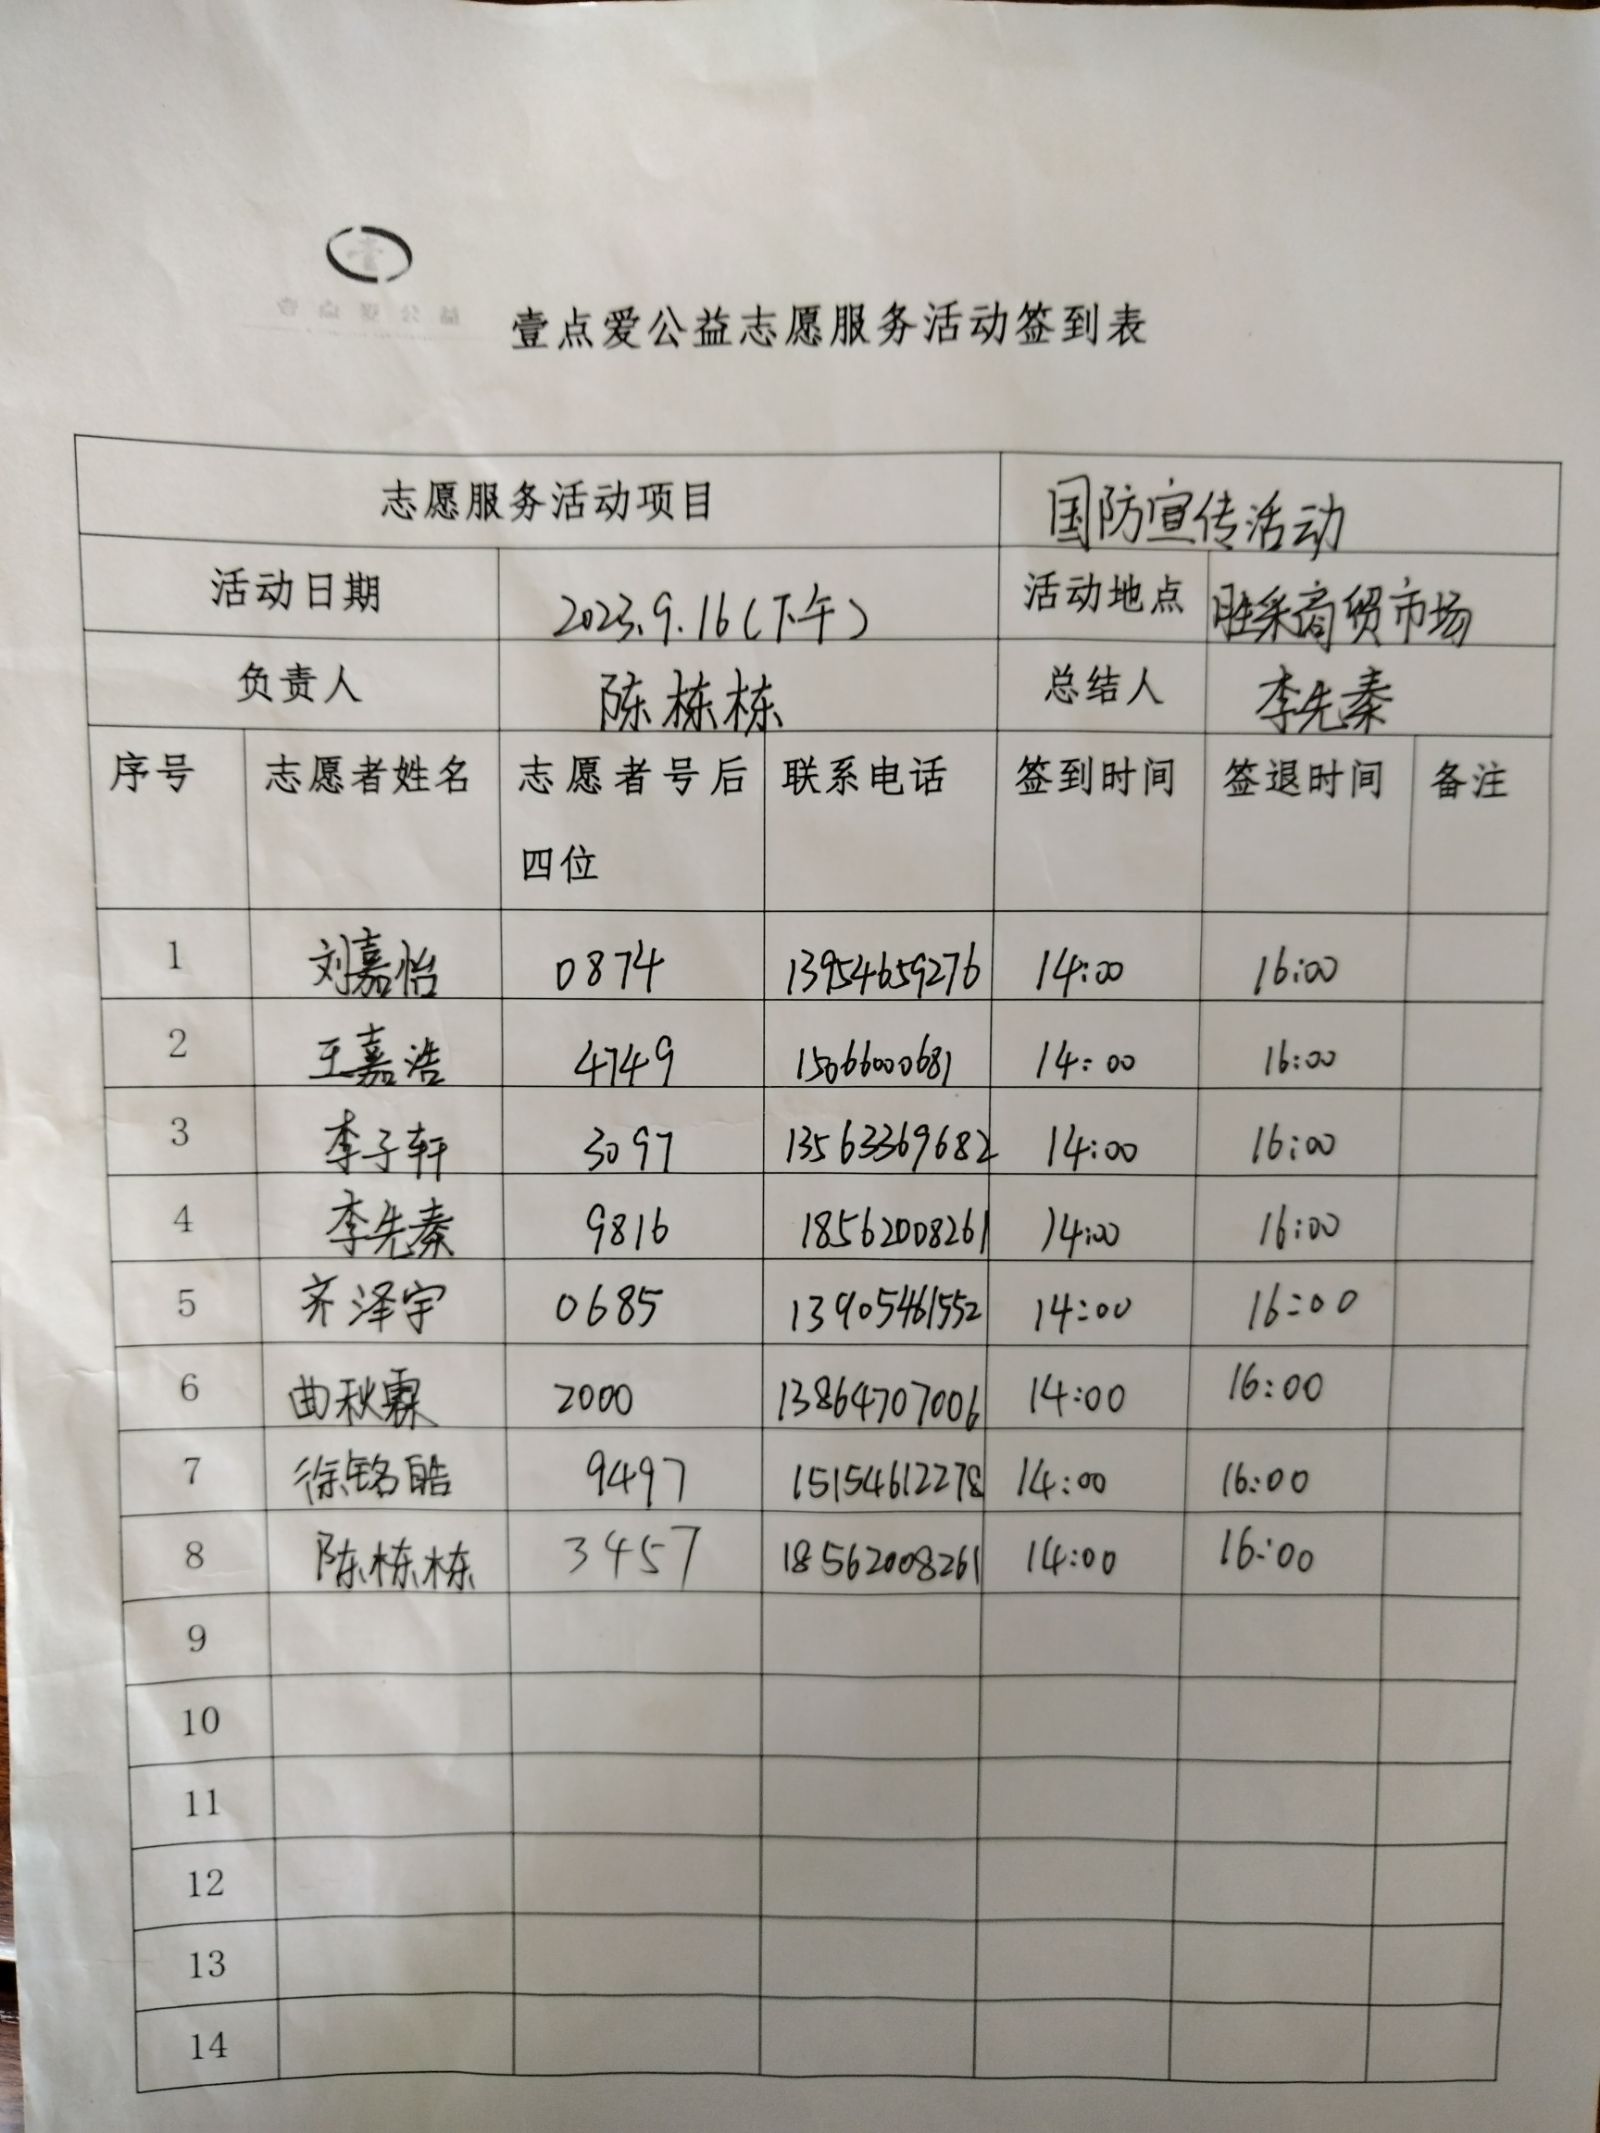 壹点爱公益志愿服务活动签到表
志愿服务活动项目 国防宣传活动
活动日期 2023.9.16(下午) 活动地点 胜采商贸市场
负责人 陈栋栋 总结人 李先秦
序号 志愿者姓名 志愿者号后 联系电话 签到时间 签退时间 备注
四位
1 刘嘉怡 0874 13954659276 14:00 16:00
2 王嘉浩 4749 15066000681 14:00 16:00
3 李子轩 3097 13563369682 14:00 16:00
4 李先秦 9816 18562008261 14:00 16:00
5 齐泽宇 0685 13905461552 14:00 16:00
6 曲秋霖 2000 13864707006 14:00 16:00
7 徐铭皓 9497 15154612278 14:00 16:00
8 陈栋栋 3457 18562008261 14:00 16:00
9
10
11
12
13
14